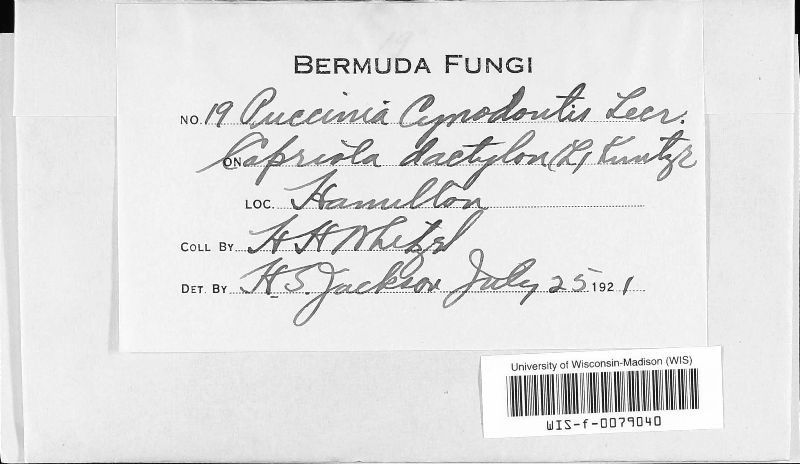 BERMUDA FUNGI
NO. 19 Puccinia Cynodontis Lacr.
ON Capriola dactylon (L) Kuntze
LOC. Hamilton
COLL BY H H Whetzel
DET. BY H. S. Jackson July 25 1921
University of Wisconsin-Madison (WIS)
WIS-f-0079040